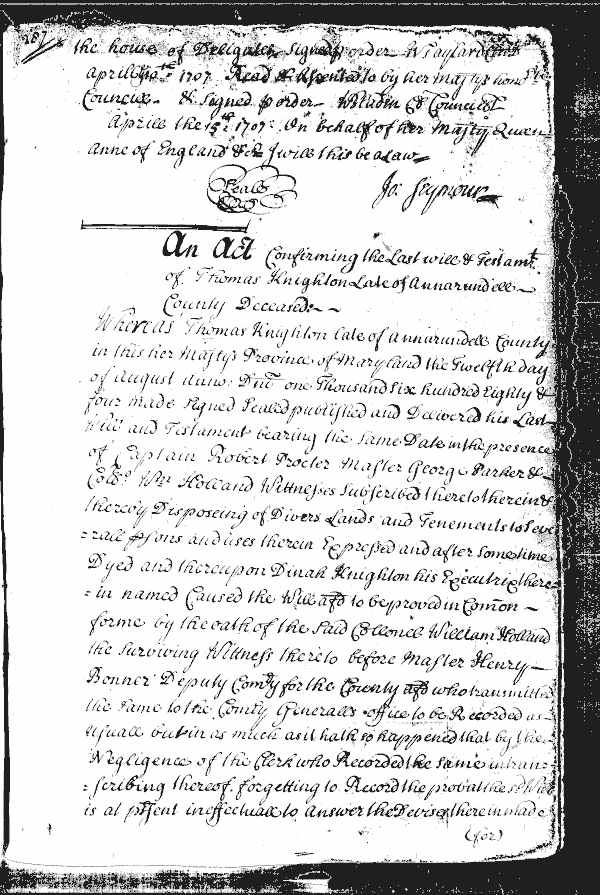 287
the house of Deligates signed p order W Taylard
Aprill 1707 Read & Assented to by her Majtys hono
Councill & signed p order W Bladen Cl Council
Aprill the 15th 1707 On behalf of her Majty Queen
Anne of England &c I will this be a Law
Seale Jo: Seymour
An Act Confirming the Last will & Testamt
of Thomas Knighton Late of Annarundell
County Deceased
Whereas Thomas Knighton late of Annarundell County
in this her Majtys Province of Maryland the Twelfth day
of August Anno: Dni one Thousand Six hundred Eighty &
four made Signed Sealed published and Delivered his Last
Will and Testament bearing the Same Date in the presence
of Captain Robert Procter Master George Parker &
Coll: Wm Holland Wittnesses Subscribed thereto therein &
thereby Disposeing of Divers Lands and Tenements to Seve
=rall psons and uses therein Expressed and after Sometime
Dyed and thereupon Dinah Knighton his Executrix there
=in named Caused the Will afd to be proved in Comon
forme by the oath of the Said Collonel William Holland
the Surviving Wittness thereto before Master Henry
Bonner Deputy Comry for the County afd who transmitted
the Same to the Comry Generalls office to be Recorded as
usuall but in as much as it hath so happened that by the
Negligence of the Clerk who Recorded the Same in tran=
=scribing thereof forgetting to Record the probat the sd Will
is at psent ineffectuall to answer the Devises therein made
(for)